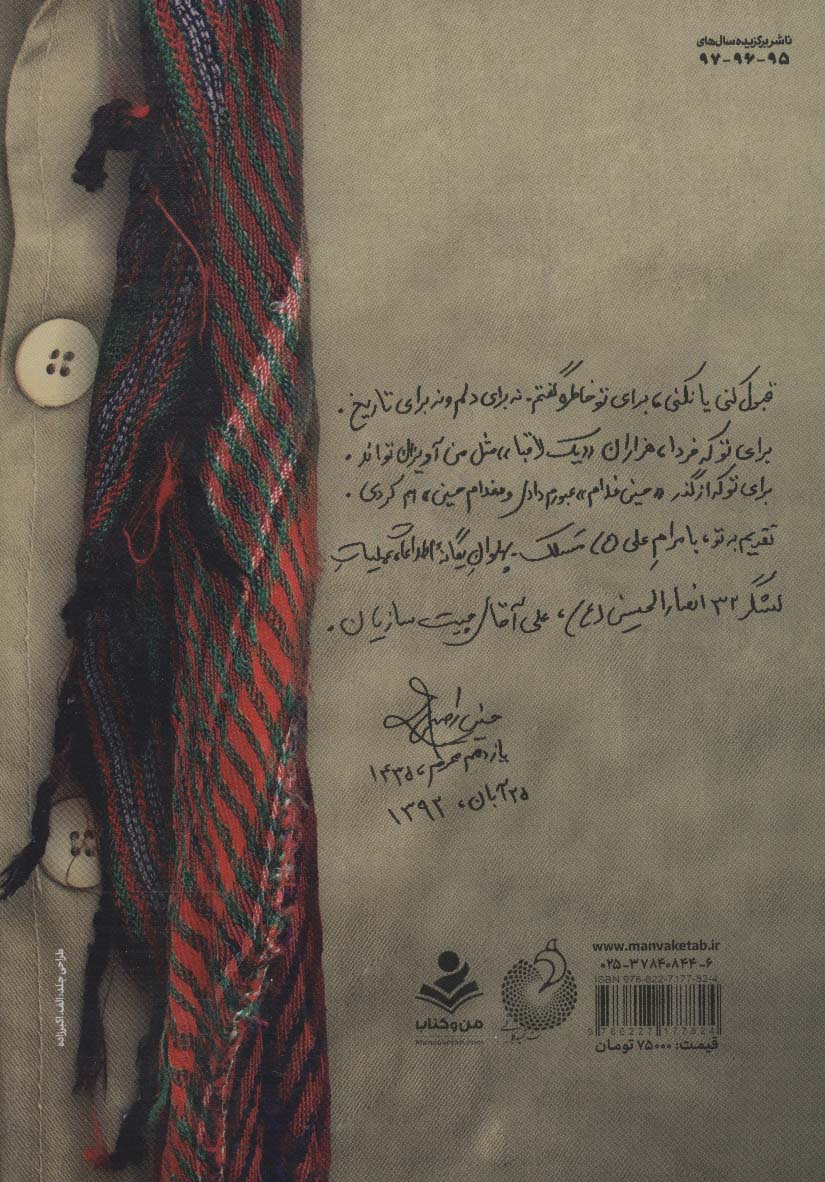 ناشر برگزیده سال‌های
۹۵-۹۶-۹۷
قبول کنی یا نکنی، برای تو خاطره گفتم. نه برای دلم و نه برای تاریخ.
برای تو که فردا، هزاران «یک لاقبا» مثل من آویزان تواند.
برای تو که از گذر «حینی غلام» عبورم دادی و «غلام حسینی» ام کردی.
تقدیم به تو، با مرام علی (ع) مسلک. پهلوان یگانهٔ اطلاعات عملیاتِ
لشگر ۳۲ انصارالحسین (ع)، علی آقای چیت سازیان.
یازدهم محرم، ۱۴۳۵
۲۵ آبان، ۱۳۹۲
طراحی جلد: الف. اکبرزاده
من و کتاب
Manvaketab.com
www.manvaketab.ir
۰۲۵-۳۷۸۴۰۸۴۴-۶
ISBN 978-622-7177-82-4
9 786227 177824
قیمت: ۷۵۰۰۰ تومان